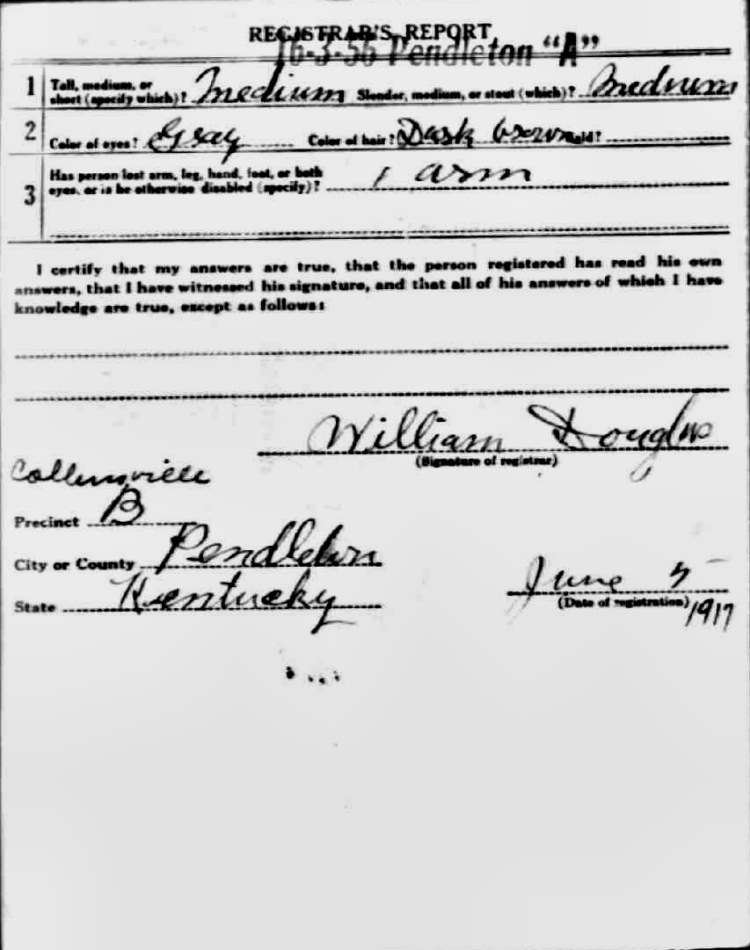 REGISTRAR'S REPORT
16-3-56 Pendleton "A"
1 Tall, medium, or short (specify which)? Medium Slender, medium, or stout (which)? Medium
2 Color of eyes? Gray Color of hair? Dark brown Bald?
3 Has person lost arm, leg, hand, foot, or both
eyes, or is he otherwise disabled (specify)? 1 arm
I certify that my answers are true, that the person registered has read his own
answers, that I have witnessed his signature, and that all of his answers of which I have
knowledge are true, except as follows:
William Douglas
(Signature of registrar)
Precinct B
City or County Pendleton
State Kentucky
June 5
(Date of registration) 1917